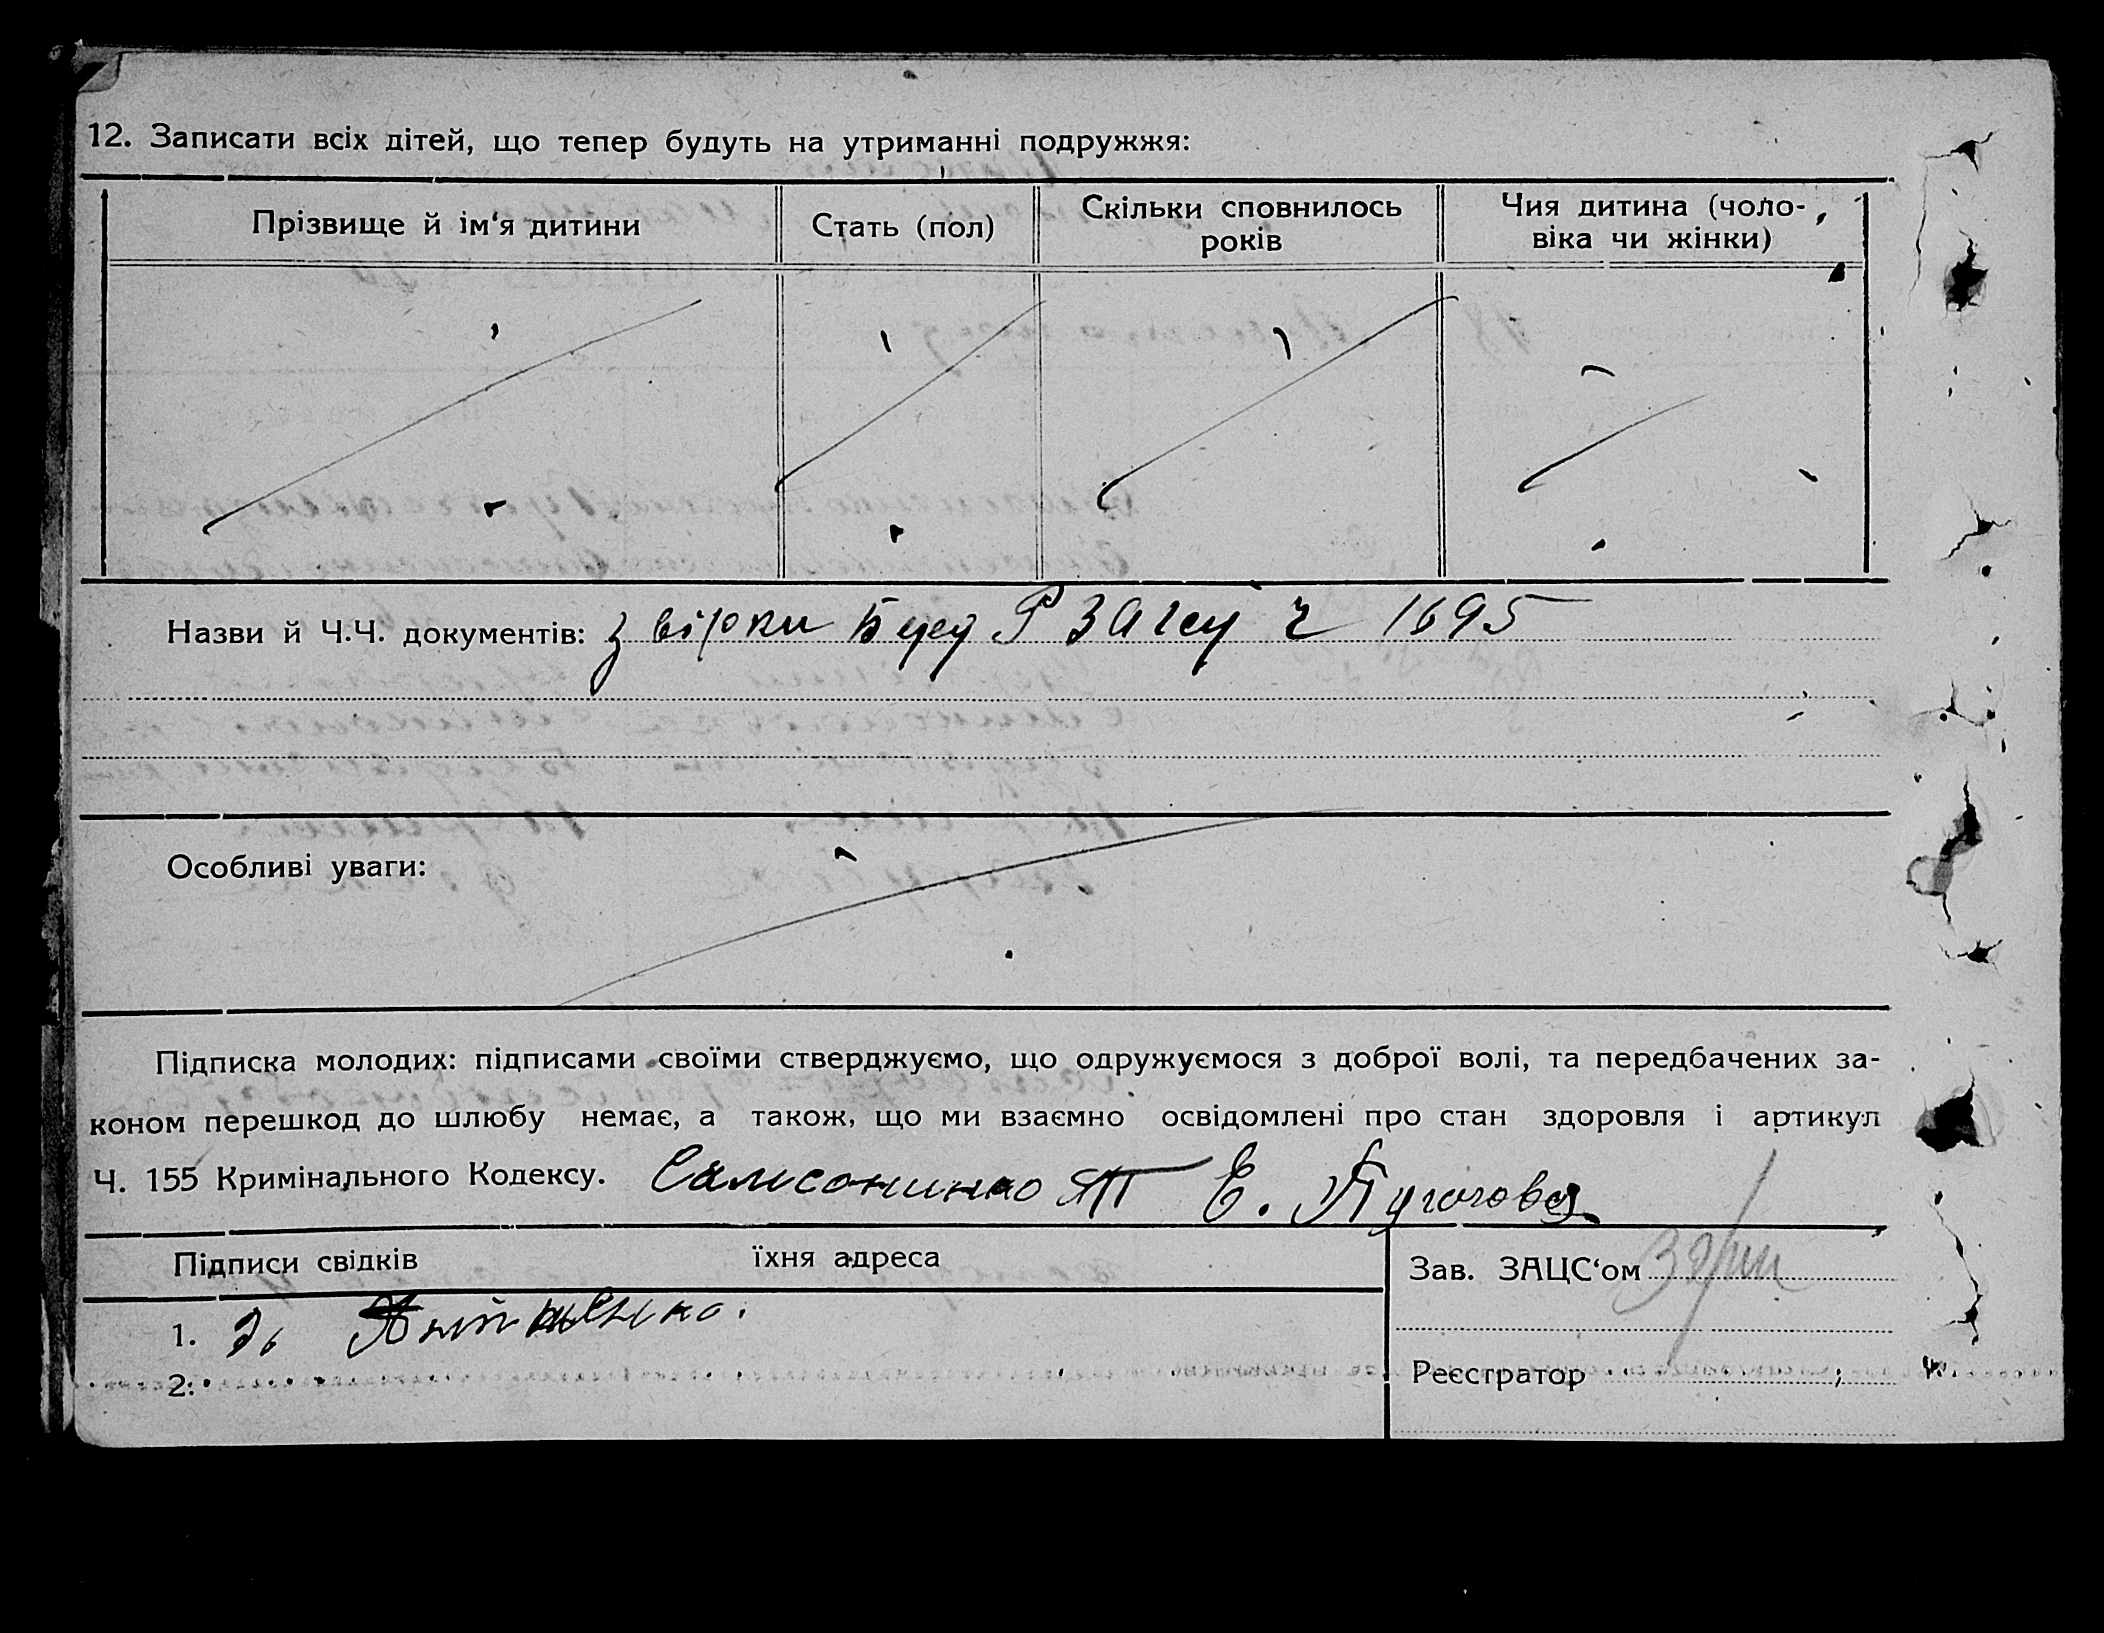 12. Записати всіх дітей, що тепер будуть на утриманні подружжя:
Прізвище й ім‘я дитини
Стать (пол)
Скільки сповнилось
років
Чия дитина (чоло-
віка чи жінки)
Назви й Ч.Ч. документів: звірки Буд Р ЗАГСу ч 1695
Особливі уваги:
Підписка молодих: підписами своїми стверджуємо, що одружуємося з доброї волі, та передбачених за-
коном перешкод до шлюбу немає, а також, що ми взаємно освідомлені про стан здоровля і артикул
Ч. 155 Кримінального Кодексу. Самсоненко ЯП Е. Пугочова
Підписи свідків
їхня адреса
Зав. ЗАЦС‘ом
1.
2.
Реєстратор